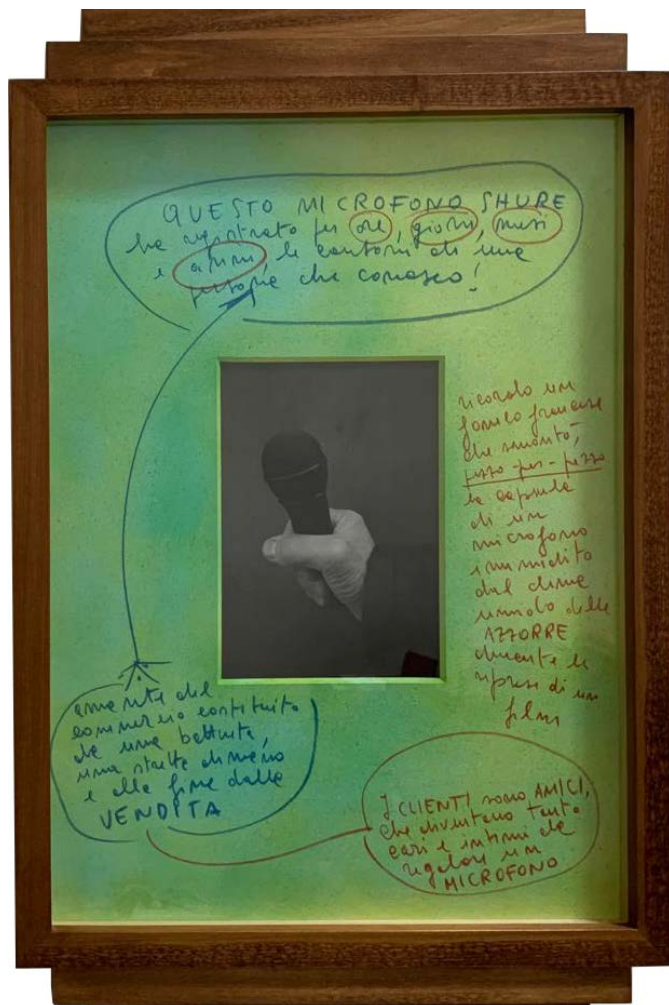 QUESTO MICROFONO SHURE
ha registrato per ore, giorni, mesi
e anni, le canzoni di una
persona che conosco!
ricordo un
fonico francese
che smontò,
pezzo-per-pezzo
la capsula
di un
microfono
inumidito
dal clima
umido delle
AZZORRE
durante le
riprese di un
film
amante del
commercio costituito
da una battuta,
una stretta di mano
e alla fine dalla
VENDITA
I CLIENTI sono AMICI,
che diventano tanto
cari e intimi da
regalare un
MICROFONO